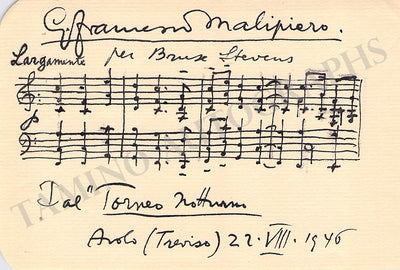 G. Francesco Malipiero.
Largamente per Bruse Stevens
p
Dal "Torneo Notturno
Asolo (Treviso) 22. VIII. 1946
TAMINO AUTOGRAPHS